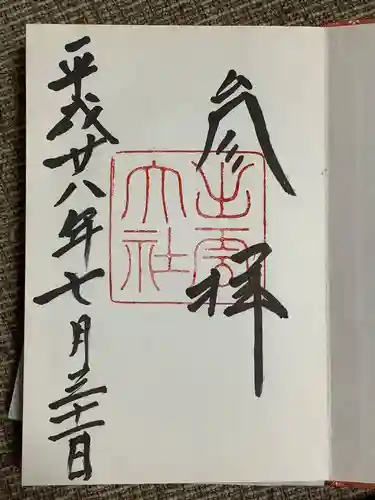 参拝
出雲大社
平成廿八年七月三十一日